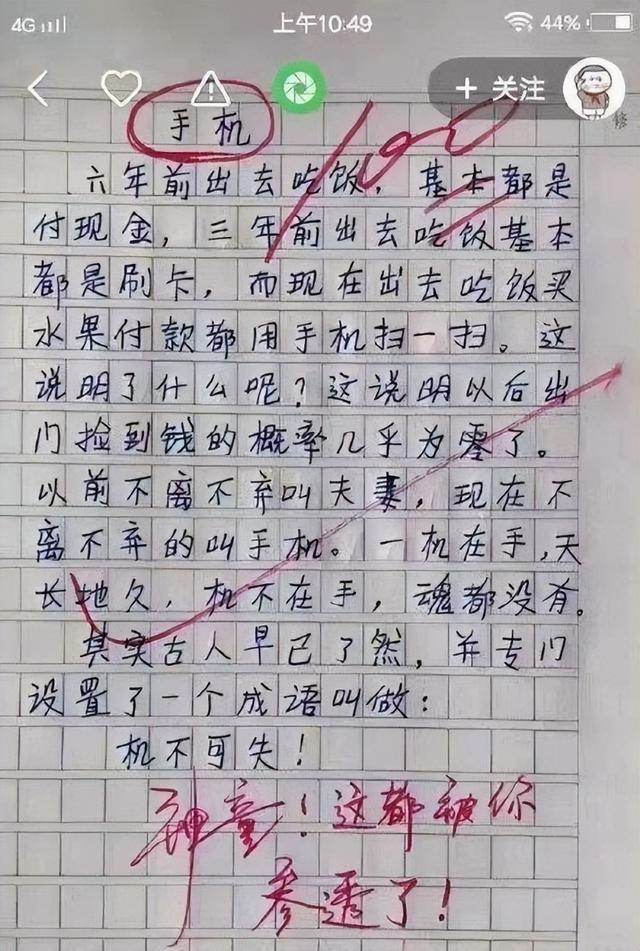 4G 上午10:49 44%
+ 关注
修
手机
100
六年前出去吃饭，基本都是
付现金，三年前出去吃饭基本
都是刷卡，而现在出去吃饭买
水果付款都用手机扫一扫。这
说明了什么呢？这说明以后出
门捡到钱的概率几乎为零了。
以前不离不弃叫夫妻，现在不
离不弃的叫手机。一机在手，天
长地久，机不在手，魂都没有。
其实古人早已了然，并专门
设置了一个成语叫做：
机不可失！
神童！这都被你
参透了！